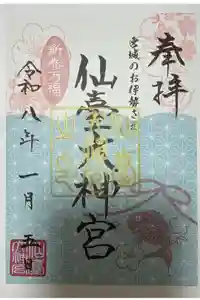 奉拝
宮城のお伊勢さま
仙臺大神宮
新春万福
令和八年 一月 五日